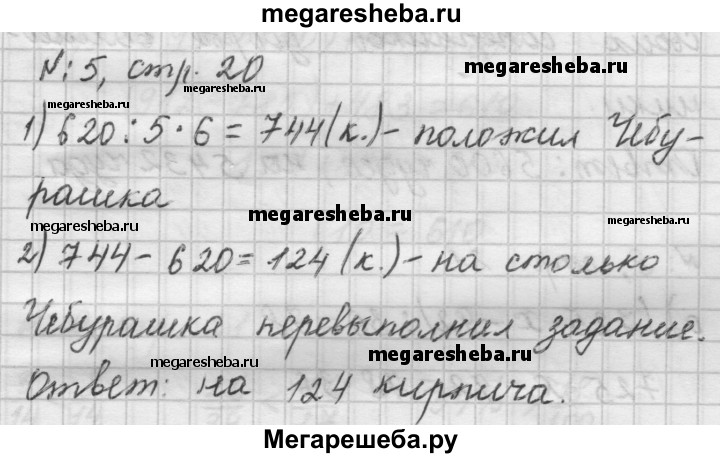 megaresheba.ru
№5, стр. 20
megaresheba.ru
megaresheba.ru
1) 620 : 5 · 6 = 744 (к.) – положил Чебу-
рашка
megaresheba.ru
megaresheba.ru
2) 744 – 620 = 124 (к.) – на столько
Чебурашка перевыполнил задание.
megaresheba.ru
megaresheba.ru
Ответ: на 124 кирпича.
Мегарешеба.ру